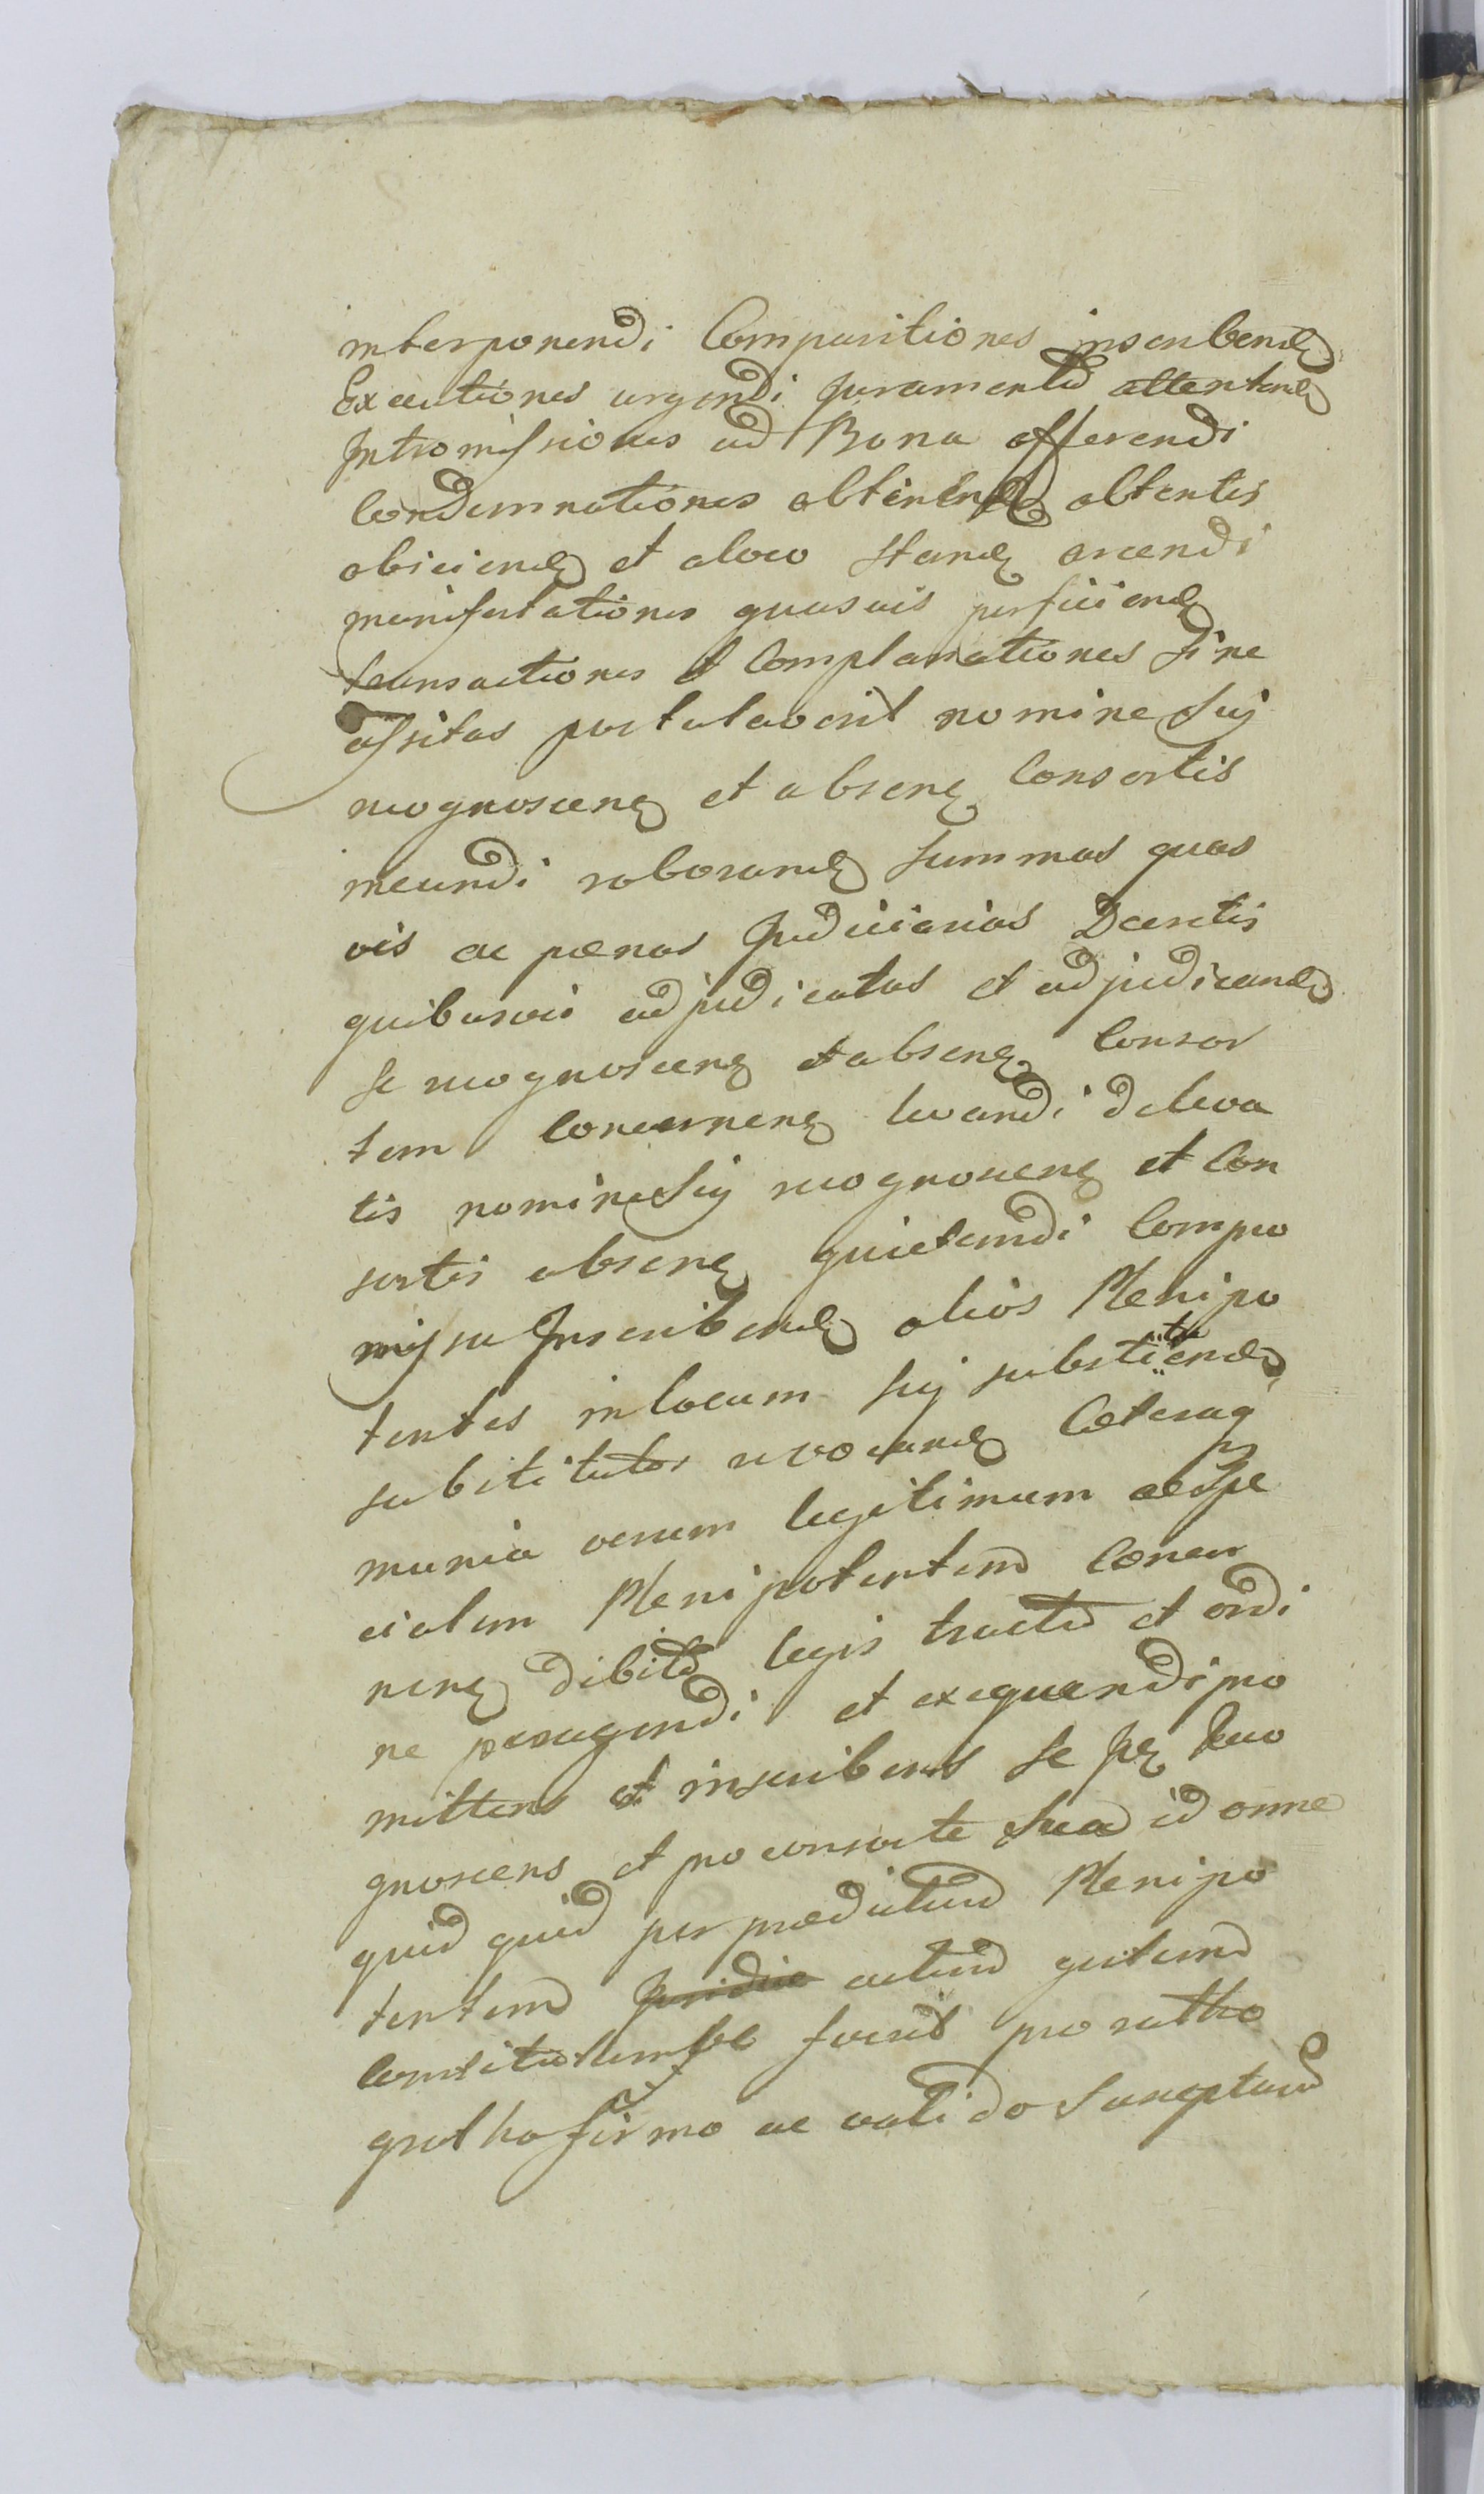 interponendi Comparitiones inscribend
Executiones urgendi Juramenta attentand
Intromissiones ad Bona offerendi
Condemnationes obtinend obtentis
obiiciend et a loco stand arcendi
manifestationes quasuis perficiend
transactiones et Complanationes si ne
cessitas postulaverit nomine sui
recognoscen et absen Consortis
ineundi roborand summas quas
vis ac pænas Judiciarias Decretis
quibusvis adjudicatas et adjudicand
se recognoscen et absen Consor
tem concernen levandi de leva
tis nomine sui recognoscen et Con
sortis absen quietandi Compro
missa Inscribend alios Plenipo
tentes in locum sui substituend
substitutos revocand Cæteraq
munia verum legitimum ac Spe
cialem Plenipotentem Concer
nen debito legis tractu et ordi
ne peragendi et exequendi pro
mittens et inscribens se Ip Reco
gnoscens et pro consorte sua id omne
quid quid per prædictum Plenipo
tentem Juridice actum gestum
constitutumve fuerit pro ratho
gratho firmo ac valido suscepturum